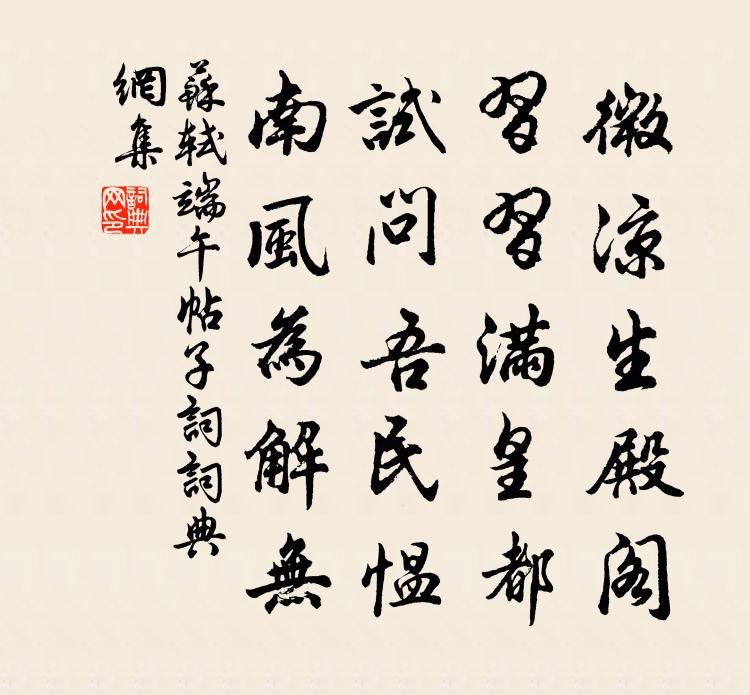 微涼生殿阁
習習滿皇都
試問吾民愠
南風為解無
蘇軾端午帖子詞詞典
網集
詞典网印